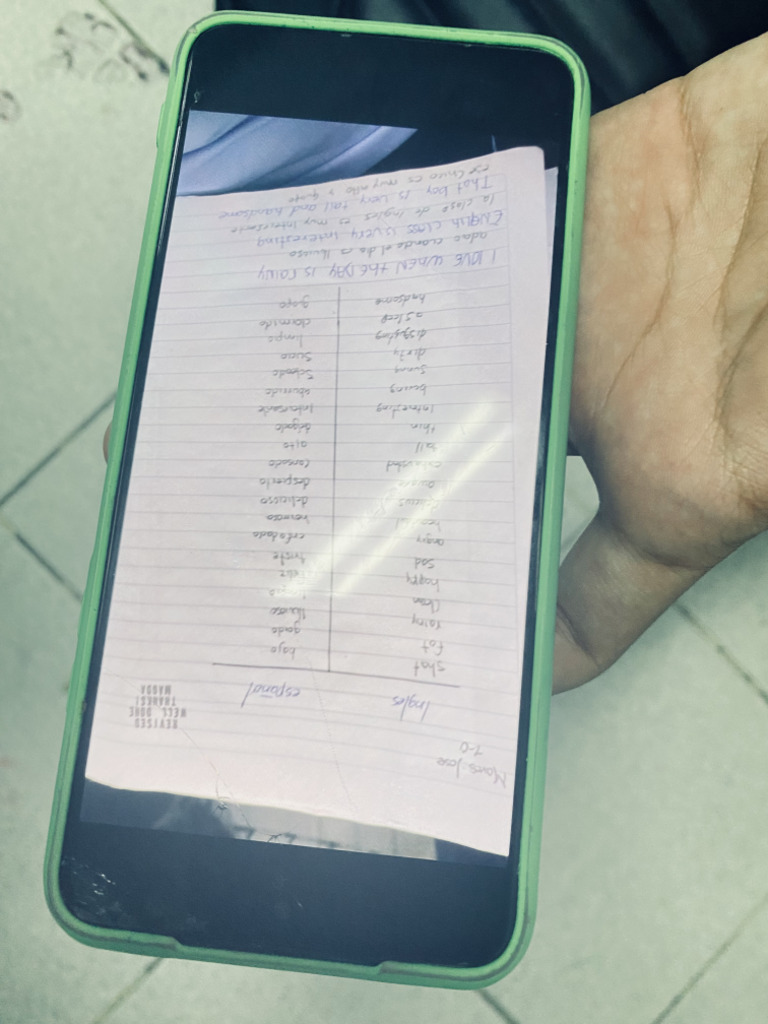 Maria Jose
7-0
REVISED
WELL DONE
THANKS!
MAGDA
Ingles español
shat bajo
fat godo
rainy lluvioso
clean
happy feliz
sad triste
angry enfadado
hermoso
delicioso
awake despierto
exhausted cansado
tall alto
thin delgado
interesting interesante
boring aburrido
sunny
dirty sucio
disgusting limpo
asleep dormido
handsome guapo
I love when the day is rainy
cuando el dia es lluvioso
English class is very interesting
la clase de ingles es muy interesante
That boy is very tall and handsome
ese chico es muy alto y guapo